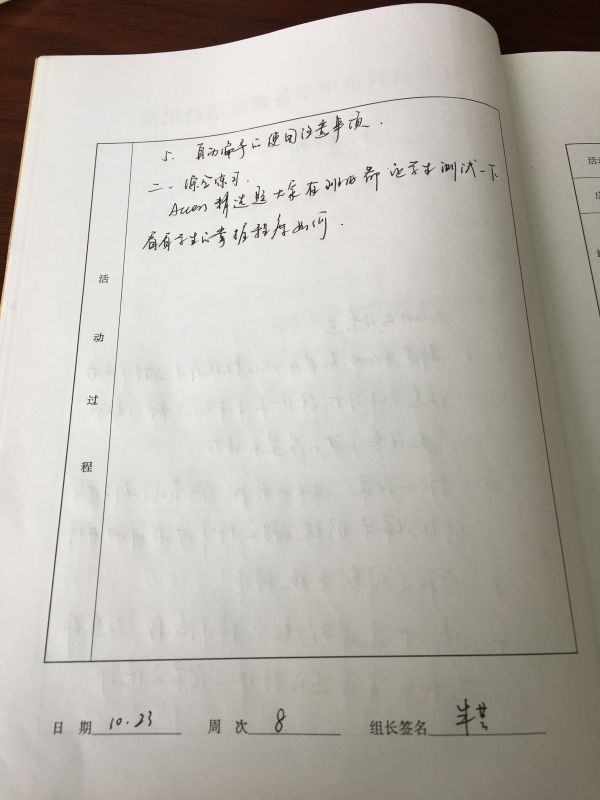 5. 自动编号的使用注意事项.
二、综合练习.
Access 精选题大家在班级都让学生测试一下
看看学生的掌握程度如何.
活动过程
日 期 10.23 周 次 8 组长签名
活